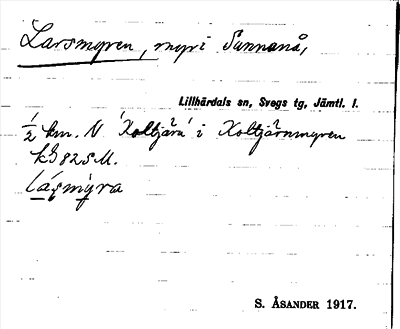 Larsmyren, myr i Sunnanå,
Lillhärdals sn, Svegs tg, Jämtl. l.
1/2 km. N 'Koltjärn' i Koltjärnmyren
kb 82 S M.
lásmỳra
S. ÅSANDER 1917.